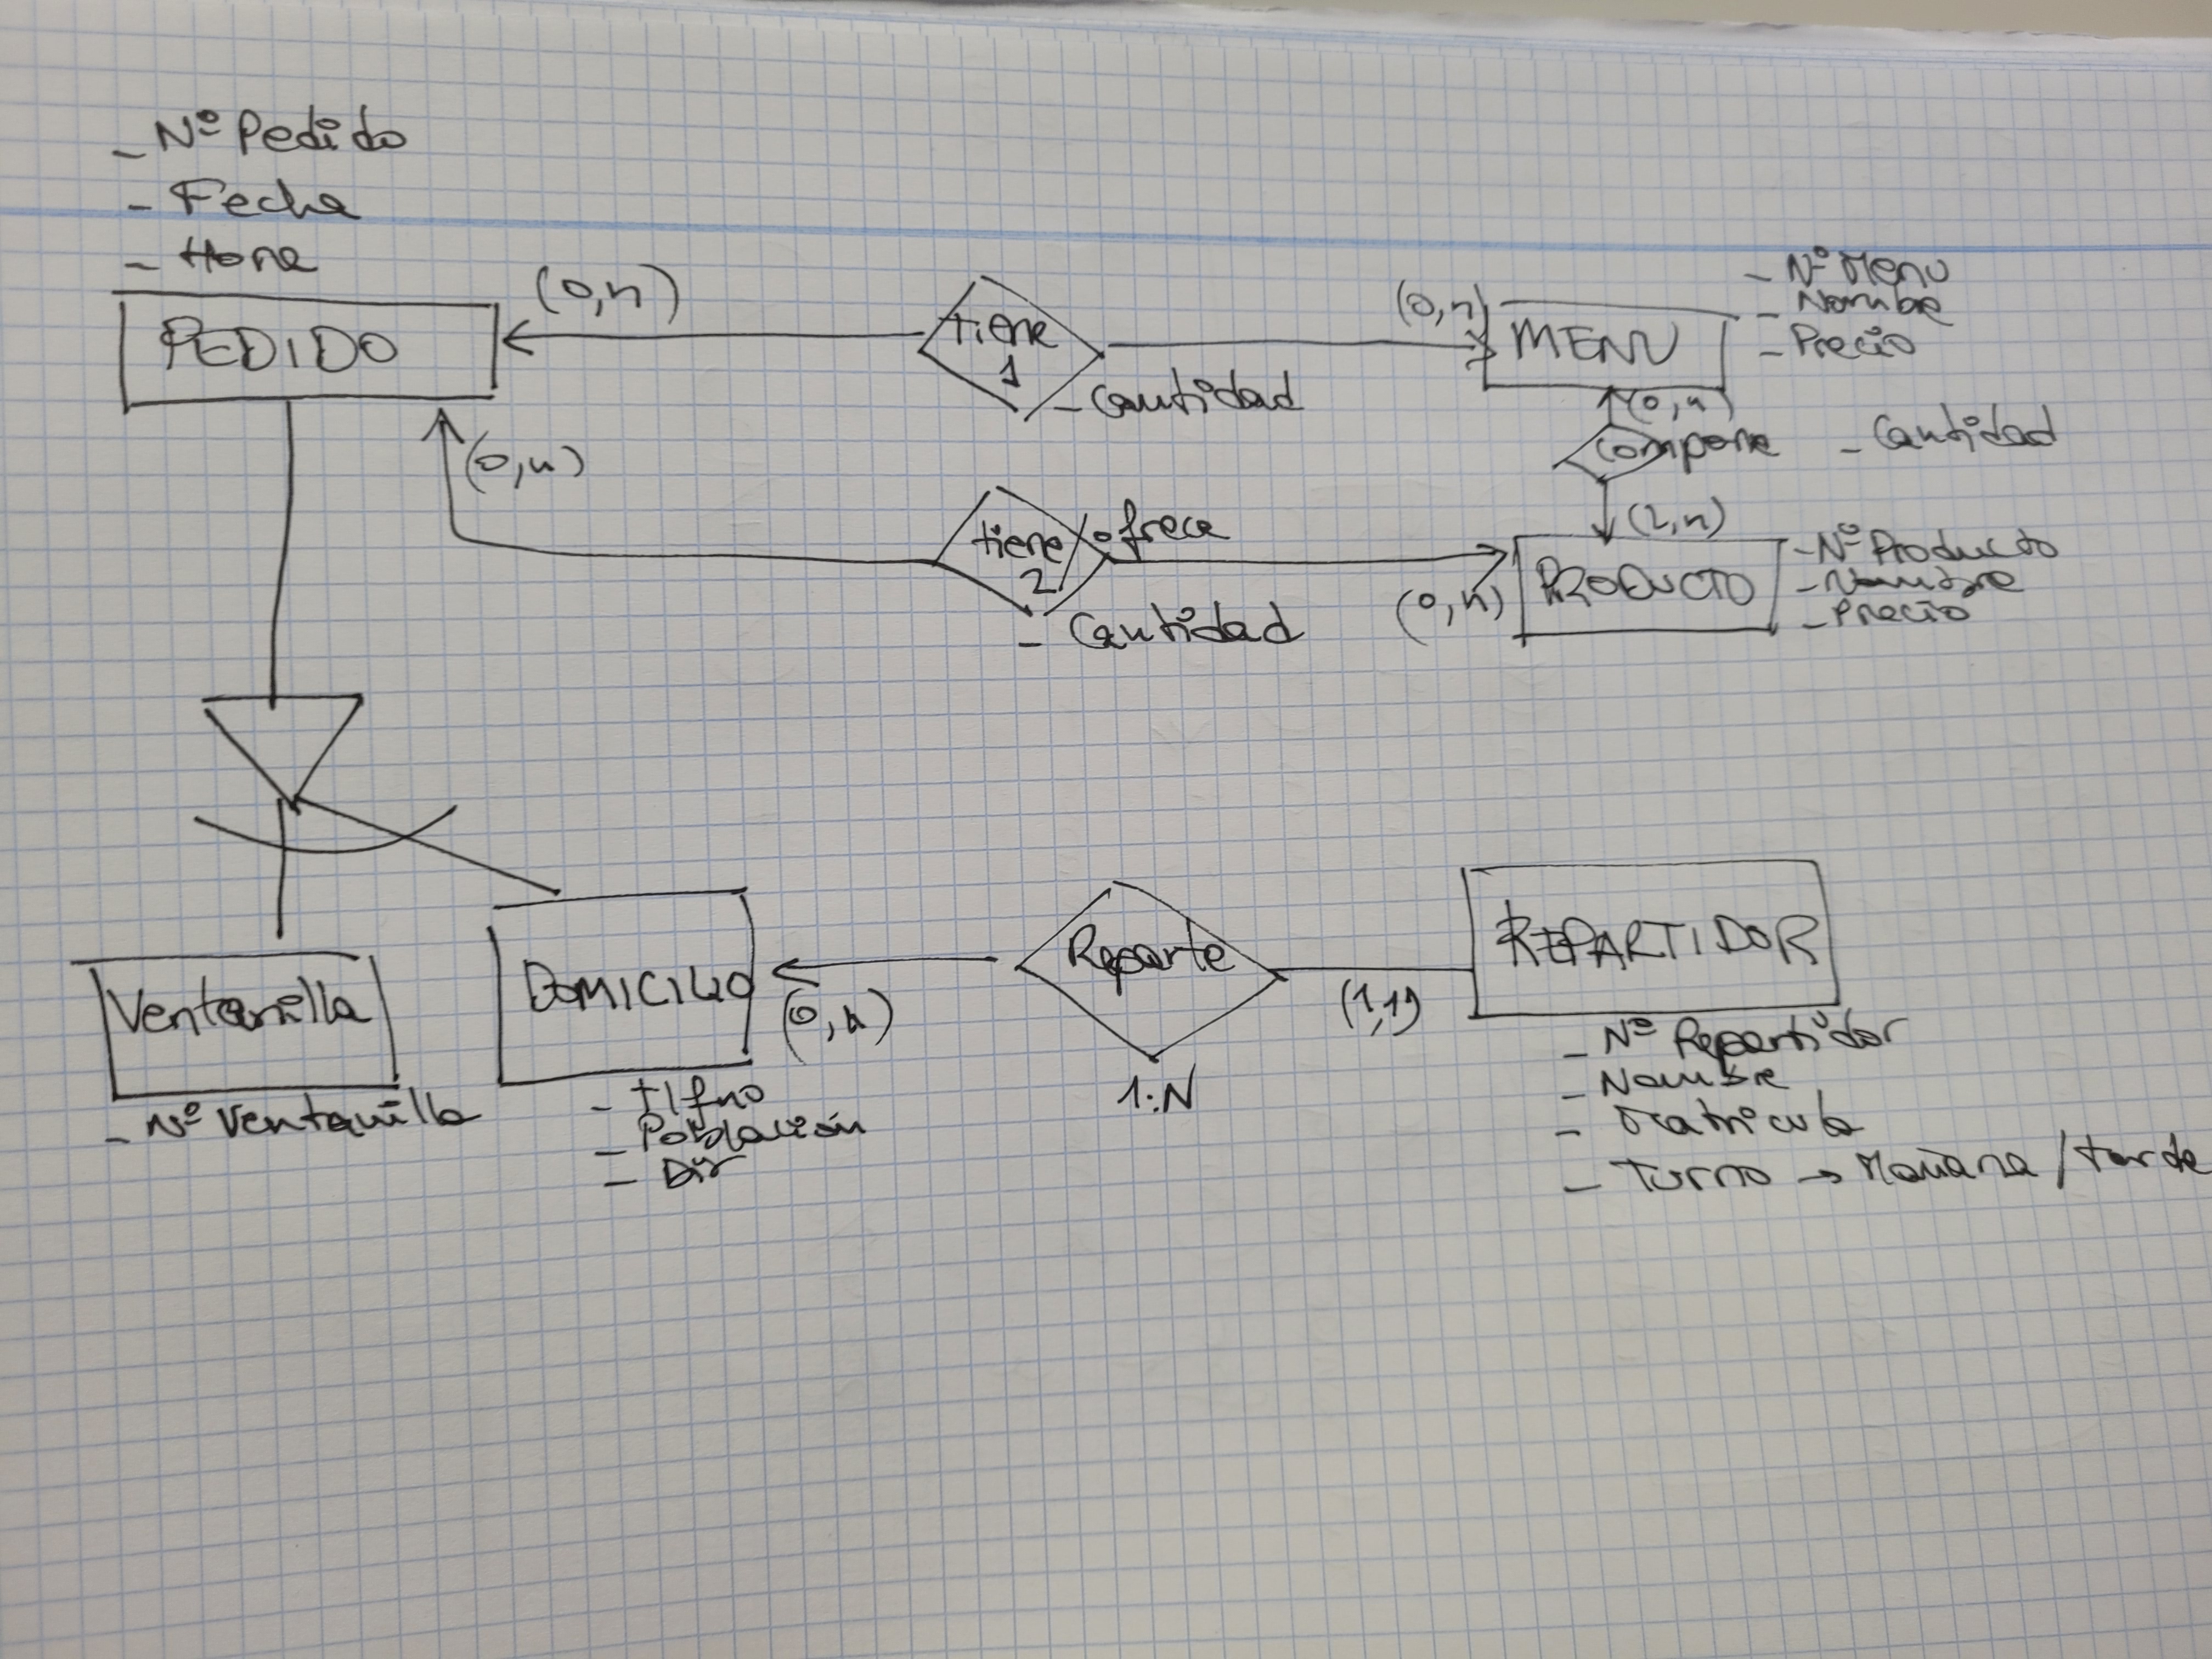 - Nº Pedido
- Fecha
- Hora
PEDIDO
(0,n)
tiene
1
- Cantidad
(0,n)
MENU
- Nº Menu
- Nombre
- Precio
(0,n)
compone
- Cantidad
(2,n)
(0,n)
tiene / ofrece
2
- Cantidad
(0,n)
PRODUCTO
- Nº Producto
- Nombre
- Precio
Ventanilla
- Nº Ventanilla
DOMICILIO
- Tlfno
- Población
- Dir
(0,n)
Reparte
1:N
(1,1)
REPARTIDOR
- Nº Repartidor
- Nombre
- Matricula
- Turno → Mañana / tarde